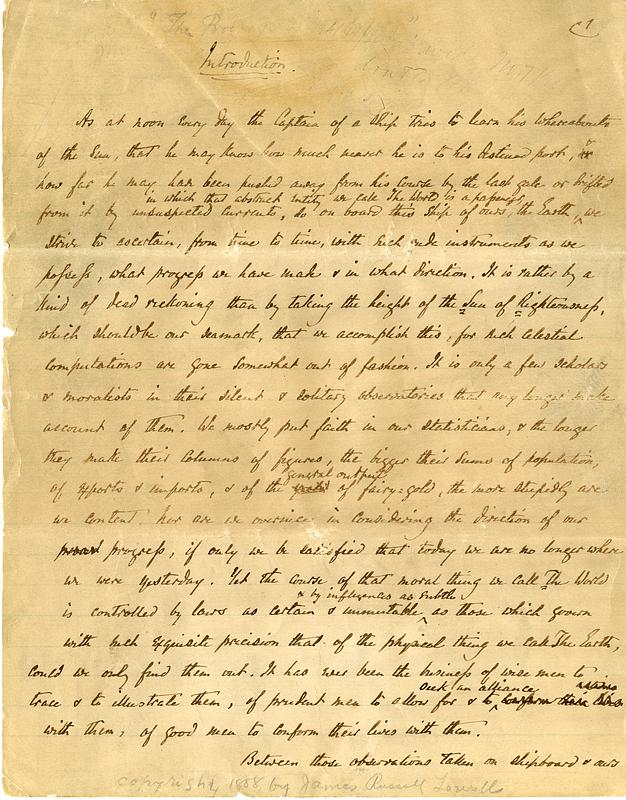 "The
1
Introduction.
As at noon every day the Captain of a ship tries to learn his whereabouts
of the Sun, that he may know how much nearer he is to his destined port, or
how far he may have been pushed away from his course by the last gale or drifted
in which that abstract entity we call The World is a passenger,
from it by unsuspected currents, so on board this ship of ours, the Earth, ‸ we
strive to ascertain, from time to time, with such rude instruments as we
possess, what progress we have made & in what direction. It is rather by a
kind of dead reckoning than by taking the height of the Sun of Righteousness,
which should be our seamark, that we accomplish this, for such celestial
computations are gone somewhat out of fashion. It is only a few scholars
& moralists in their silent & solitary observatories that any longer make
account of them. We mostly put faith in our statisticians, & the longer
they make their columns of figures, the bigger their sums of population,
general output
of exports & imports, & of the of fairy=gold, the more stupidly are
we content. Nor are we overnice in considering the direction of our
progress, if only we be satisfied that today we are no longer where
we were yesterday. Yet the course of that moral thing we call The World
& by influences as subtle
is controlled by laws as certain & immutable ‸ as those which govern
with such exquisite precision that of the physical thing we call The Earth,
could we only find them out. It has ever been the business of wise men to
seek an alliance
trace & to illustrate them, of prudent men to allow for & to ‸
with them, of good men to conform their lives with them.
Between those observations taken on shipboard & ours
copyright, 1888, by James Russell Lowell